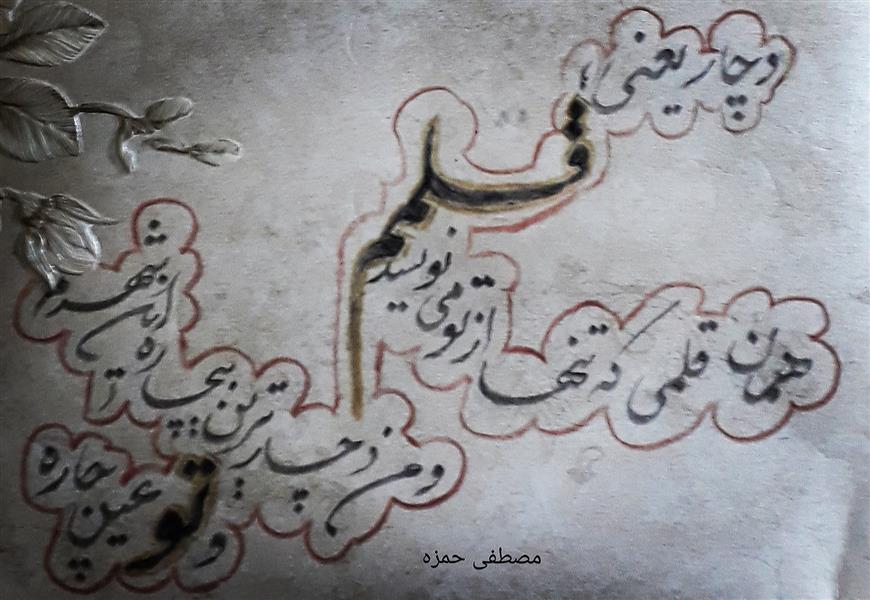 دچار یعنی
قلم
همان قلمی که تنها از تو می نویسد
و من دچار ترین بیچاره
شهرم
و تو عین چاره
مصطفی حمزه